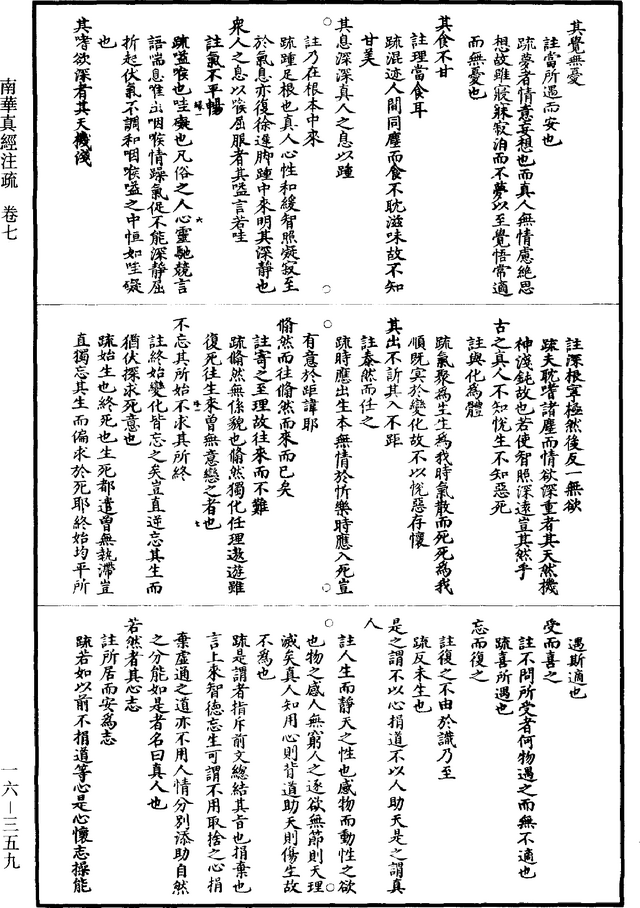 南華真經注疏　卷七
一六—三五九
其覺無憂
註當所遇而安也
疏夢者情意妄想也而真人無情慮絕思
想故雖寢寐寂泊而不夢以至覺悟常適
而無憂也
其食不甘
註理當食耳
疏混迹人間同塵而食不耽滋味故不知
甘美
其息深深真人之息以踵
註乃在根本中來
疏踵足根也真人心性和緩智照凝寂至
於氣息亦復徐遲脚踵中來明其深靜也
衆人之息以喉屈服者其嗌言若哇
註氣不平暢
疏嗌喉也哇礙也凡俗之人心靈馳競言
語喘息唯出咽喉情躁氣促不能深靜屈
折起伏氣不調和咽喉嗌之中恒如哇礙
也
其嗜欲深者其天機淺
註深根寧極然後反一無欲
疏夫耽嗜諸塵而情欲深重者其天然機
神淺鈍故也若使智照深遠豈其然乎
古之真人不知悅生不知惡死
註與化為體
疏氣聚為生生為我時氣散而死死為我
順既冥於變化故不以悅惡存懷
其出不訢其入不距
註泰然而任之
疏時應出生本無情於忻樂時應入死豈
有意於距諱耶
翛然而往翛然而來而已矣
註寄之至理故往來而不難
疏翛然無係貌也翛然獨化任理遨遊雖
復死往生來曾無意戀之者也
不忘其所始不求其所終
註終始變化皆忘之矣豈直逆忘其生而
猶伏探求死意也
疏始生也終死也生死都遣曾無執滯豈
直獨忘其生而偏求於死耶終始均平所
遇斯適也
受而喜之
註不問所受者何物遇之而無不適也
疏喜所遇也
忘而復之
註復之不由於識乃至
疏反未生也
是之謂不以心捐道不以人助天是之謂真
人
註人生而靜天之性也感物而動性之欲
也物之感人無窮人之逐欲無節則天理
滅矣真人知用心則背道助天則傷生故
不為也
疏是謂者指斥前文總結其旨也捐棄也
言上來智德忘生可謂不用取捨之心捐
棄虛通之道亦不用人情分別添助自然
之分能如是者名曰真人也
若然者其心志
註所居而安為志
疏若如以前不捐道等心是心懷志操能